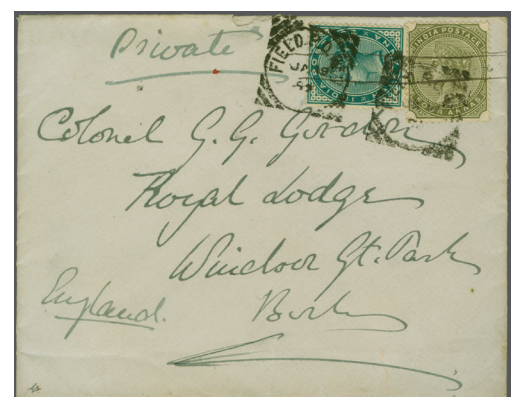 Private
FIELD P.O.
JA 9
INDIA POSTAGE
Colonel G. G. Gordon
Royal Lodge
Windsor Gt. Park
England. Berks